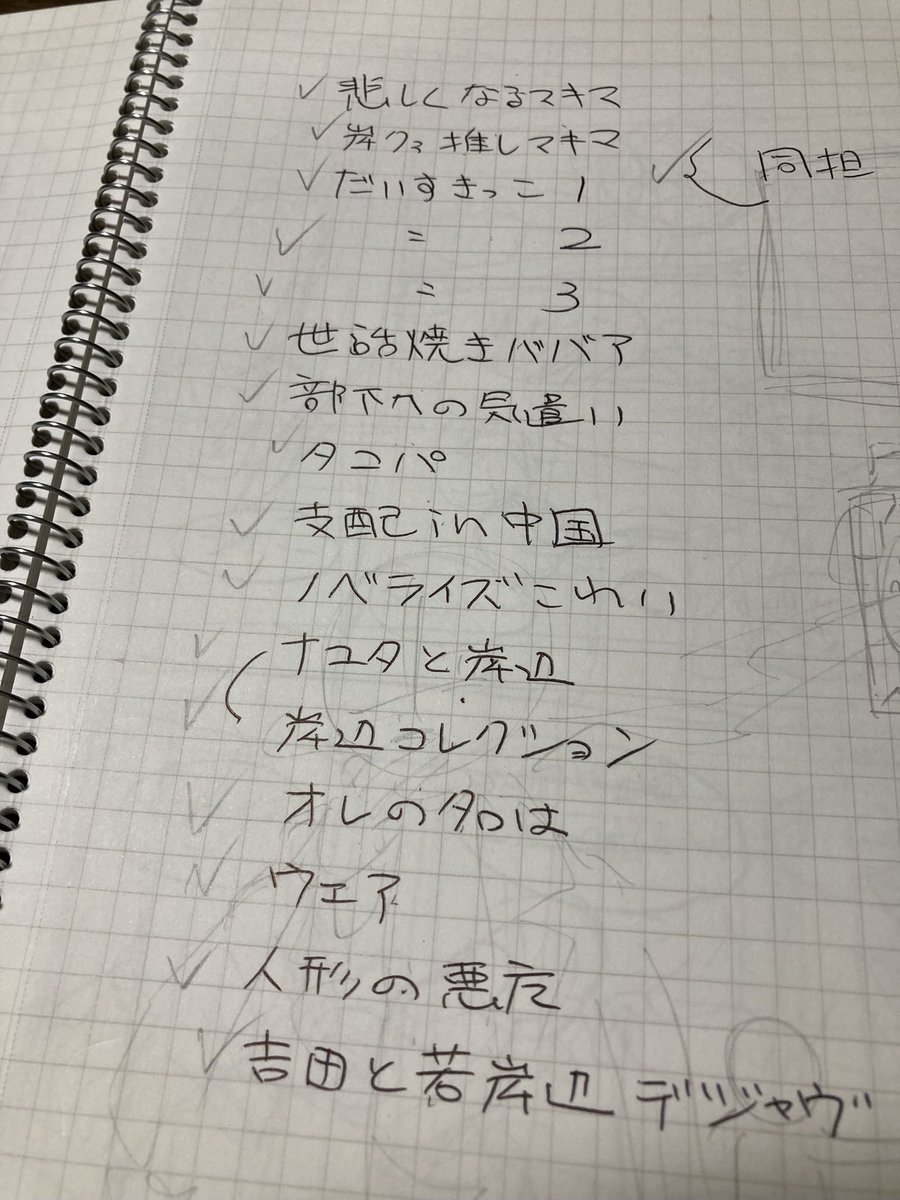 悲しくなるマキマ
岸クァ推しマキマ
同担
だいすきっこ 1
〃 2
〃 3
世話焼きババア
部下への気遣い
タコパ
支配in中国
ノベライズこわい
ナユタと岸辺
岸辺コレクション
オレの
ウェア
人形の悪
吉田と若岸辺デジャヴ